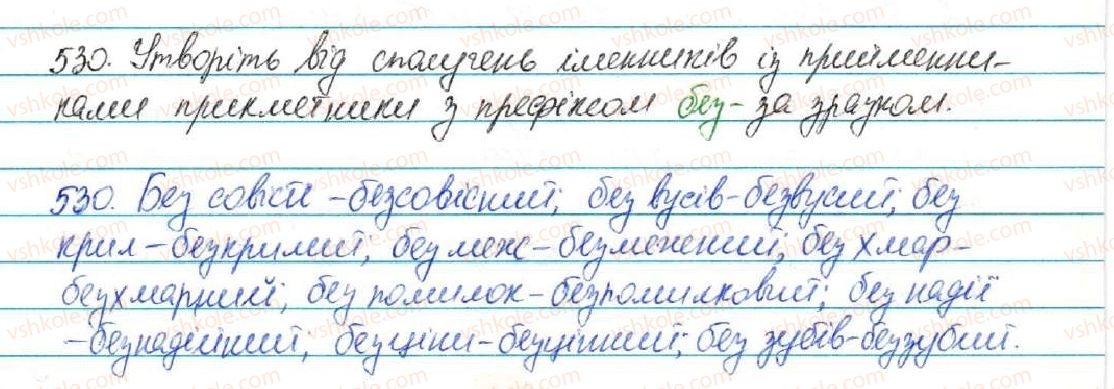 530. Утворіть від сполучень іменників із прийменни-
ками прикметники з префіксом без- за зразком.
530. Без совісті - безсовісний; без вусів - безвусий; без
крил - безкрилий; без меж - безмежний; без хмар -
безхмарний; без помилок - безпомилковий; без надії
- безнадійний; без ціни - безцінний; без зубів - беззубий.